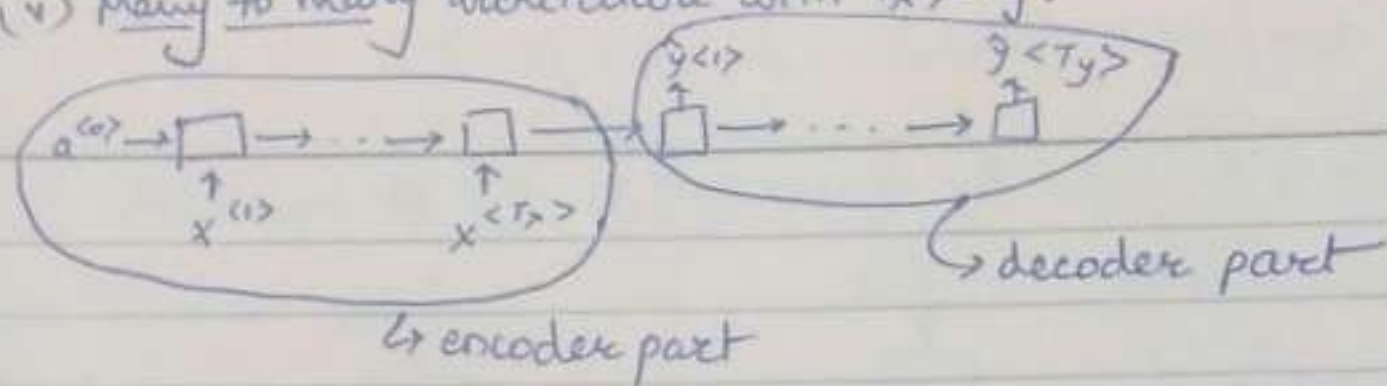 (v) Many to many with
ŷ<1> ŷ<Ty>
a<0> → → ... → → → ... →
x<1> x<Tx>
↳ decoder part
↳ encoder part